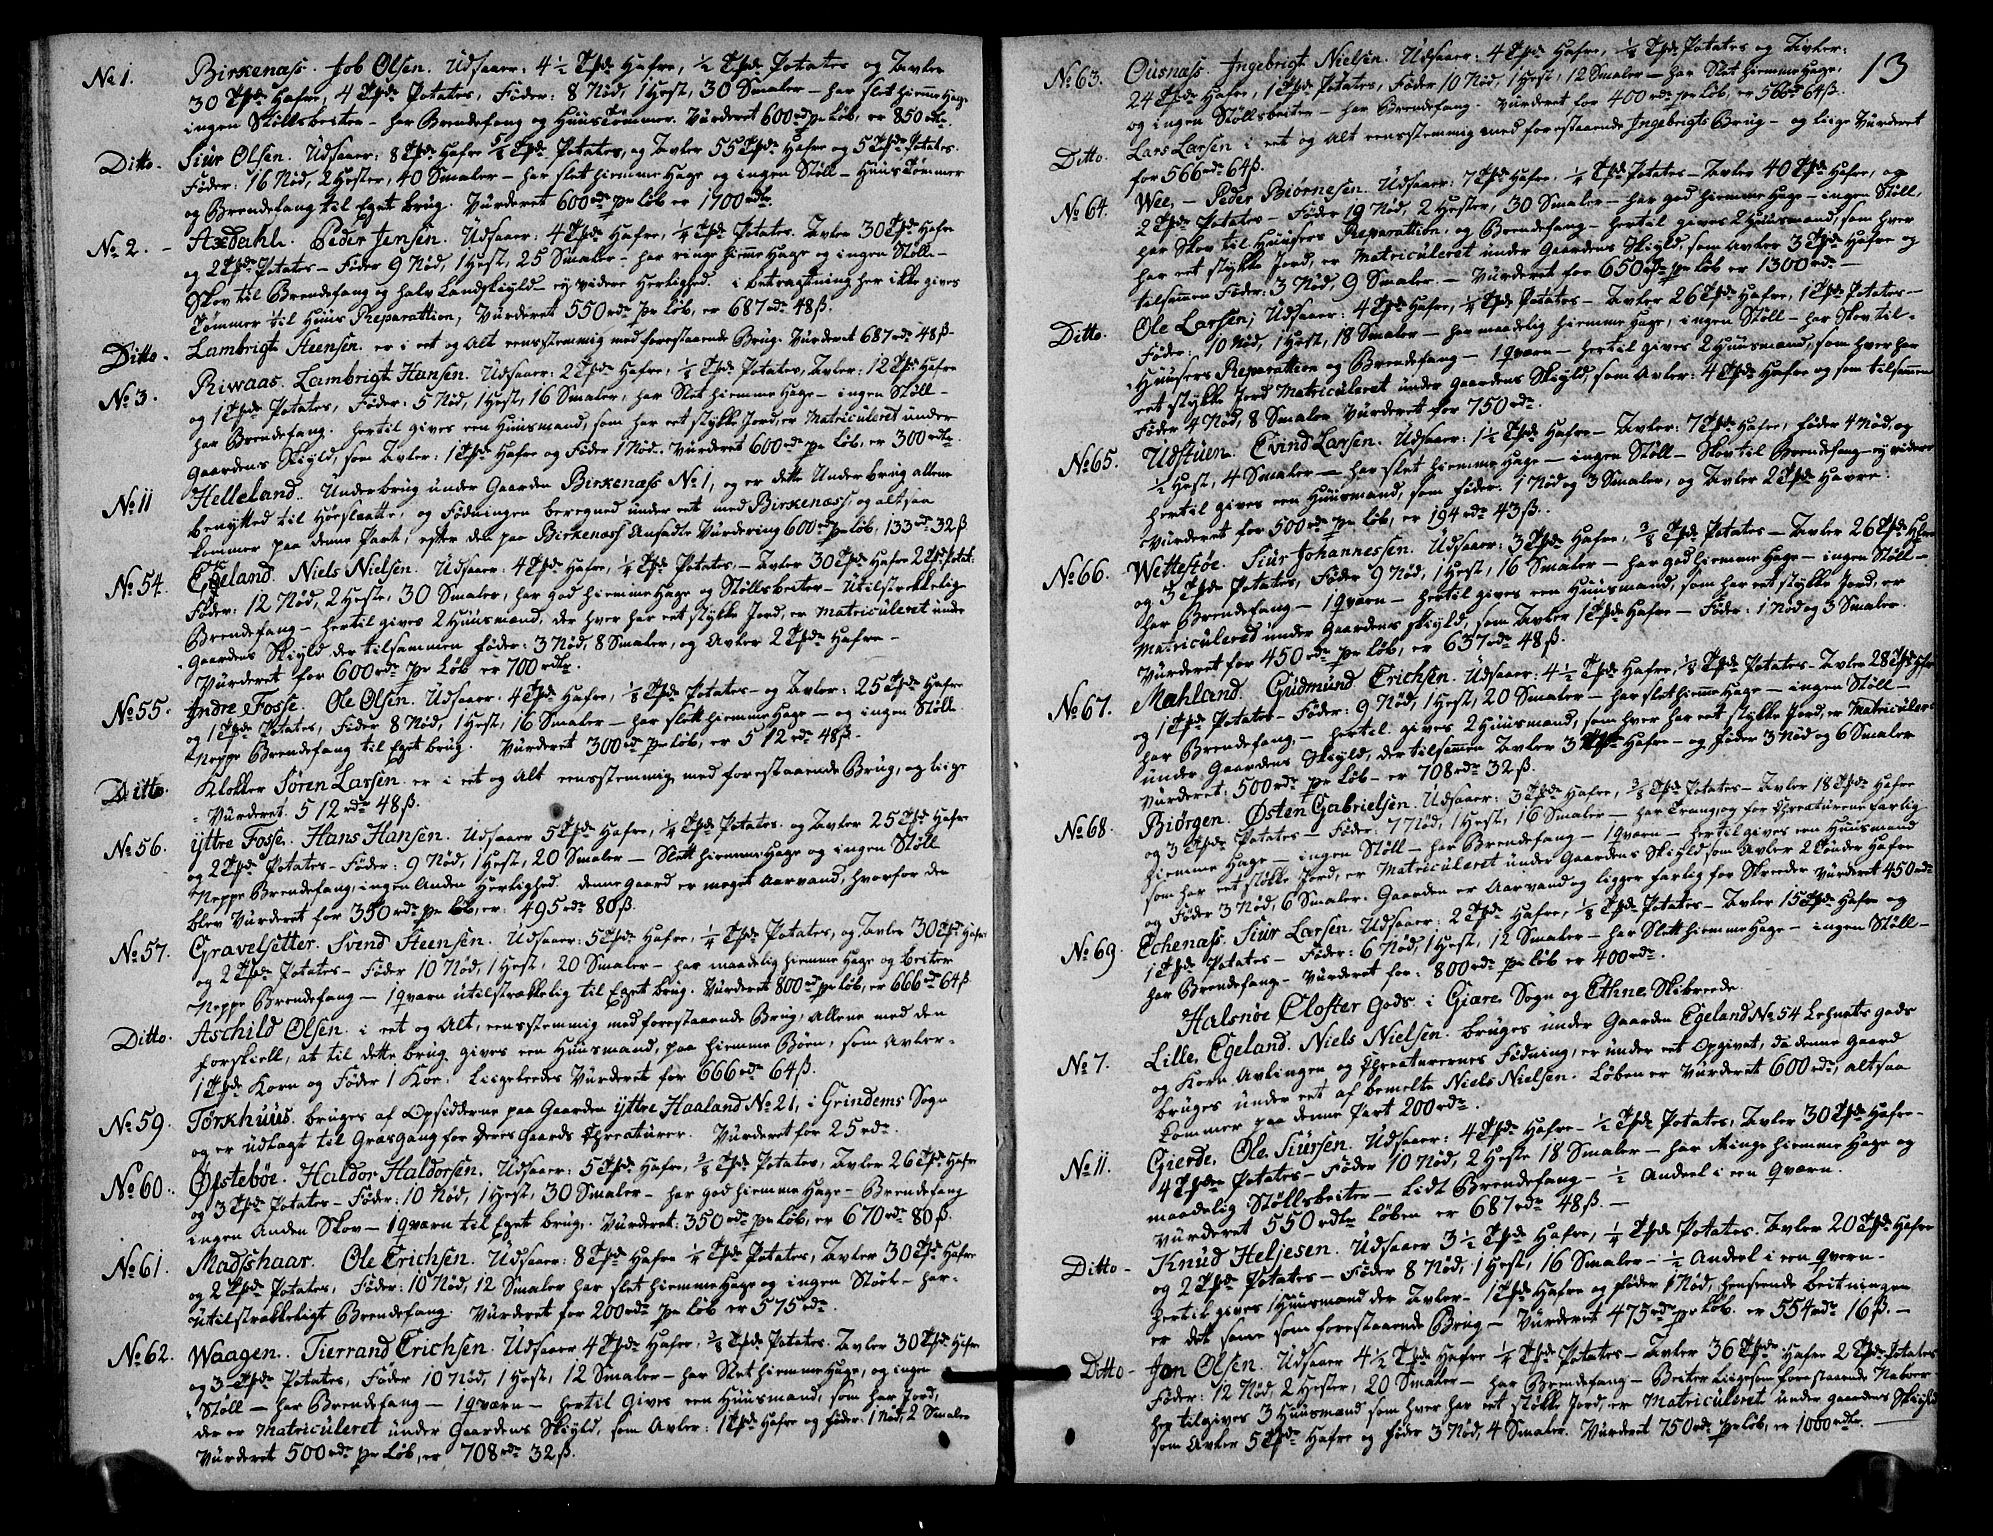 No 1. Birkenæss. Job Olsen. Udsaaer: 4½ Tpde Hafre, ½ Tpde Potates og Avler
30 Tpde Hafre, 4 Tpde Potates, Føder: 8 Nød, 1 Hest, 30 Smaler – har slet hiemme Hage
ingen Støllsbeiter – har Brendefang og Huus Tømmer. Vurderet 600 rd pr Løb, er 850 rdr.
Ditto. Siur Olsen. Udsaaer: 8 Tpde Hafre ⅝ Tpde Potates, og Avler 55 Tpde Hafre og 5 Tpde Potates.
Føder: 16 Nød, 2 Hester, 40 Smaler – har slet hiemme Hage og ingen Støll – Huus Tømmer
og Brendefang til Eget brug. Vurderet 600 rdr pr Løb er 1700 rdr.
No 2. – Axdahl. Peder Jensen. Udsaaer: 4 Tpde Hafre, ¼ Tpde Potates. Avler 30 Tpde Hafre
og 2 Tpde Potates – Føder 9 Nød, 1 Hest, 25 Smaler – har ringe hiemme Hage og ingen Støll –
Skov til Brendefang og halv Landskyld – ey videre Herlighed. i betragtning her ikke gives
Tømmer til Huus Reparattion, Vurderet 550 rdr pr Løb, er 687 rdr 48 ß.
Ditto. Lambrigt Steensen. er i eet og Alt eensstemmig med forestaaende Brug. Vurderet 687 rdr 48 ß.
No 3. Riwaas. Lambrigt Hansen. Udsaaer: 2 Tpde Hafre, ⅛ Tpde Potates, Avler: 12 Tpde Hafre
og 1 Tpde Potates, Føder: 5 Nød, 1 Hest, 16 Smaler, har Slet hiemme Hage – ingen Støll –
har Brendefang. hertil gives een Huusmand, som har eet stykke Jord, er Matriculeret under
Gaardens Skyld, som Avler: 1 Tpde Hafre og Føder 1 Nød. Vurderet 600 rdr pr Løb, er 300 rdlr.
No 11 Helleland. Underbrug under Gaarden Birkenæss No 1, og er dette Underbrug allene
benytted til Høeslaatte, og Fødningen beregned under eet med Birkenæss, og altsaa
kommer paa denne Part, efter den paa Birkenæss Ansadte Vurdering 600 rd pr Løb, 133 rdr 32 ß
No 54. Egeland. Niels Nielsen. Udsaaer: 4 Tpde Hafre, ¼ Tpde Potates – Avler 30 Tpde Hafre 2 Tpde Potat.
Føder: 12 Nød, 2 Heste, 30 Smaler, har god hiemme Hage og Støllsbeiter – Utilstrekkelig
Brendefang – hertil gives 2 Huusmænd, der hver har eet stykke Jord, er Matriculeret under
Gaardens Skyld der tilsammen føder: 3 Nød, 8 Smaler, og Avler 2 Tpde Hafre –
Vurderet for 600 rdr pr Løb er 700 rdlr.
No 55. Indre Fosse. Ole Olsen. Udsaaer: 4 Tpde Hafre, ⅛ Tpde Potates – og Avler: 25 Tpde Hafre
og 1 Tpde Potates, Føder 8 Nød, 1 Hest, 16 Smaler – har slett hiemme Hage – og ingen Støll
Neppe Brendefang til Eget brug. Vurderet 300 rdr pr Løb, er 512 rdr 48 ß.
Ditto. Klokker Søren Larsen. er i eet og Alt eensstemmig med forestaaende Brug, og liige
Vurderet. 512 rdr 48 ß.
No 56. Yttre Fosse. Hans Hansen. Udsaaer 5 Tpde Hafre, ¼ Tpde Potates. og Avler 25 Tpde Hafre
og 2 Tpde Potates – Føder: 9 Nød, 1 Hest, 20 Smaler – Slett hiemme Hage og ingen Støll
Neppe Brendefang, ingen Anden Herlighed. denne Gaard er meget Aarvand, hvorfor den
blev Vurderet for 350 rdr pr Løb, er: 495 rdr 80 ß.
No 57. Gravelsetter. Svend Steensen. Udsaaer: 5 Tpde Hafre, ¼ Tpde Potates, og Avler 30 Tpde Hafre
og 2 Tpde Potates – Føder 10 Nød, 1 Hest, 20 Smaler – har maadelig hiemme Hage og beiter
Neppe Brendefang – 1 qværn utilstrækkelig til Eget brug. Vurderet 800 rdr pr Løb, er 666 rdr 64 ß.
Ditto. Aschild Olsen. i eet og Alt, eensstemmig med forestaaende Brug, Allene med den
forskiell, at til dette brug gives een Huusmand, paa hiemme Bøen, som Avler –
1 Tpde Korn og Føder 1 Koe. Liigeleedes Vurderet for 666 rdr 64 ß.
No 59. Tørkhuus. bruges af Opsidderne paa Gaarden Yttre Haaland No 21, i Grindems Sogn
og er udlagt til Græsgang for deres Gaards Chreaturer. Vurderet for 25 rdr.
No 60. Østebøe. Haldor Haldorsen. Udsaaer: 5 Tpde Hafre, ⅜ Tpde Potates, Avler 26 Tpde Hafre
og 3 Tpde Potates – Føder: 10 Nød, 1 Hest, 30 Smaler – har god hiemme Hage – Brendefang
ingen Anden Skov – 1 qværn til Eget brug. Vurderet: 350 rdr pr Løb, er 670 rdr 80 ß.
No 61. Madshaar. Ole Erichsen. Udsaaer: 8 Tpde Hafre ¼ Tpde Potates, Avler 30 Tpde Hafre
og 2 Tpde Potates, Føder: 10 Nød, 12 Smaler har slet hiemme Hage og ingen Støel – har –
utilstrækkeligt Brendefang. Vurderet for 200 rdr pr Løb er 575 rdr.
No 62. Waagen. Tierrand Erichsen. Udsaaer 4 Tpde Hafre, ⅜ Tpde Potates. Avler 30 Tpde Hafre
og 3 Tpde Potates, Føder 10 Nød, 1 Hest, 12 Smaler – har Slet hiemme Hage, og ingen
Støll – har Brendefang – 1 qværn – hertil gives een Huusmand, som har Jord,
der er Matriculeret under Gaardens Skyld, som Avler: 1 Tpde Hafre og føder: 1 Nød, 2 Smaler
Vurderet 500 rdr pr Løb, er 708 rdr 32 ß.
13
No 63. Ousnæss. Ingebrigt Nielsen. Udsaaer: 4 Tpde Hafre, ⅛ Tpde Potates og Avler:
24 Tpde Hafre, 1 Tpde Potates, Føder 10 Nød, 1 Hest, 12 Smaler – har Slet hiemme Hage,
og ingen Støllsbeiter – har Brendefang. Vurderet for 400 rdr pr Løb, er 566 rdr 64 ß.
Ditto. Lars Larsen i eet og Alt eensstemmig med forestaaende Ingebrigts Brug – og liige Vurderet
for 566 rdr 64 ß.
No 64. Wee, – Peder Biørnesen. Udsaaer: 7 Tpde Hafre, ¼ Tpde Potates – Avler 40 Tpde Hafre, og
2 Tpde Potates – Føder 19 Nød, 2 Hester, 30 Smaler – har god hiemme Hage – ingen Støll,
har Skov til Huusers Reparattion, og Brendefang – hertil gives 2 Huusmænd, som hver
har eet stykke Jord, er Matriculeret under Gaardens Skyld, som Avler 3 Tpde Hafre og
tilsammen Føder: 3 Nød, 9 Smaler – Vurderet for 650 rdr pr Løb er 1300 rdr –
Ditto. Ole Larsen; Udsaaer: 4 Tpde Hafre, ¼ Tpde Potates – Avler 26 Tpde Hafre, 1 Tpde Potates –
Føder: 10 Nød, 1 Hest, 18 Smaler – har maadelig hiemme Hage, ingen Støll – har Skov til –
Huusers Reparattion og Brendefang – 1 qværn – hertil gives 2 Huusmænd, som hver har
eet stykke Jord Matriculeret under Gaardens Skyld, som Avler: 4 Tpde Hafre og som tilsammen
Føder 4 Nød, 8 Smaler Vurderet for 750 rdr.
No 65. Udstuen. Evind Larsen. Udsaaer: 1½ Tpde Hafre – Avler: 7 Tpde Hafre, føder 4 Nød, og
½ Hest, 4 Smaler – har slet hiemme Hage – ingen Støll – Skov til Brendefang – ey videre
hertil gives een Huusmand, som føder: 1 Nød og 3 Smaler, og Avler 2 Tpde Havre.
Vurderet for 500 rdr pr Løb, er 194 rdr 43 ß.
No 66. Wettestøe. Siur Johannessen. Udsaaer: 3 Tpde Hafre, ⅜ Tpde Potates – Avler 26 Tpde Hafre
og 3 Tpde Potates, Føder 9 Nød, 1 Hest, 16 Smaler – har god hiemme Hage – ingen Støll –
har Brendefang – 1 qværn – hertil gives een Huusmand, som har eet stykke Jord, er
Matriculeret under Gaardens Skyld, som Avler 1 Tpde Hafre – Føder: 1 Nød og 3 Smaler.
Vurderet for 450 rdr pr Løb, er 637 rdr 48 ß.
No 67. Mahland. Gudmund Erichsen. Udsaaer: 4½ Tpde Hafre, ⅛ Tpde Potates – Avler 28 Tpde Hafre
og 1 Tpde Potates – Føder: 9 Nød, 1 Hest, 20 Smaler – har slet hiemme Hage – ingen Støll –
har Brendefang. – hertil gives 2 Huusmænd, som hver har eet stykke Jord, er Matriculeret
under Gaardens Skyld, der tilsammen Avler 3 Tpde Hafre – og føder 3 Nød og 6 Smaler
Vurderet: 500 rdr pr Løb – er 708 rdr 32 ß.
No 68. Biørgen. Østen Gabrielsen. Udsaaer: 3 Tpde Hafre, ⅜ Tpde Potates – Avler 18 Tpde Hafre
og 3 Tpde Potates – Føder: 7 Nød, 1 Hest, 16 Smaler – har Trang, og for Chreaturene farlig
hiemme Hage – ingen Støll – har Brendefang – 1 qværn – hertil gives een Huusmand
som har eet støkke Jord, er Matriculeret under Gaardens Skyld som Avler 2 Tønder Hafre
og Føder 3 Nød, 6 Smaler. Gaarden er Aarvand og ligger farlig for Skreeder Vurderet 450 rdr
No 69. Echenæss. Siur Larsen. Udsaaer: 2 Tpde Hafre, ⅛ Tpde Potates – Avler 15 Tpde Hafre og
1 Tpde Potates – Føder: 6 Nød, 1 Hest, 12 Smaler – har Slett hiemme Hage – ingen Støll –
har Brendefang – Vurderet for: 800 rdr pr Løb er 400 rdr.
Halsnøe Closter Gods i Giære Sogn og Ethne Skibreede.
No 7. Lille Egeland. Niels Nielsen. bruges under Gaarden Egeland No 54 Lehnets gods
og Korn Avlingen og Chreaturernes Fødning, er under eet Opgivet, da denne Gaard
bruges under eet af bemelte Niels Nielsen. Løben er Vurderet 600 rdr, altsaa
kommer paa denne Part 200 rdr.
No 11. Gierde. Ole Siursen. Udsaaer: 4 Tpde Hafre – ½ Tpde Potates, Avler 30 Tpde Hafre –
4 Tpde Potates – Føder 10 Nød, 2 Heste 18 Smaler – har Ringe hiemme Hage og
maadelig Støllsbeiter – Lidt Brendefang – ½ Andeel i een qværn.
Vurderet 550 rdlr Løben er 687 rdr 48 ß. –
Ditto – Knud Heljesen. Udsaaer 3½ Tpde Hafre, ¼ Tpde Potates. Avler 20 Tpde Hafre
og 2 Tpde Potates – Føder 8 Nød, 1 Hest, 16 Smaler – ½ Andeel i een qværn –
hertil gives 1 Huusmand der Avler – 1 Tpde Hafre og føder 1 Nød, henseende beitningen
er det same som forestaaende Brug – Vurderet 475 rdr pr Løb. er 554 rdr 16 ß. –
Ditto – Jon Olsen. Udsaaer 4½ Tpde Hafre ¼ Tpde Potates – Avler 36 Tpde Hafre 2 Tpde Potates
Føder: 12 Nød, 2 Hester, 20 Smaler – har Brendefang – Beiter Liigesom forestaaende Naboer
hertil gives 3 Huusmænd som hver har eet støkke Jord, er Matriculeret under gaardens Skyld
som Avler 5 Tpde Hafre og føder 3 Nød, 4 Smaler. Vurderet 750 rdr pr Løb, er 1000 rdlr.